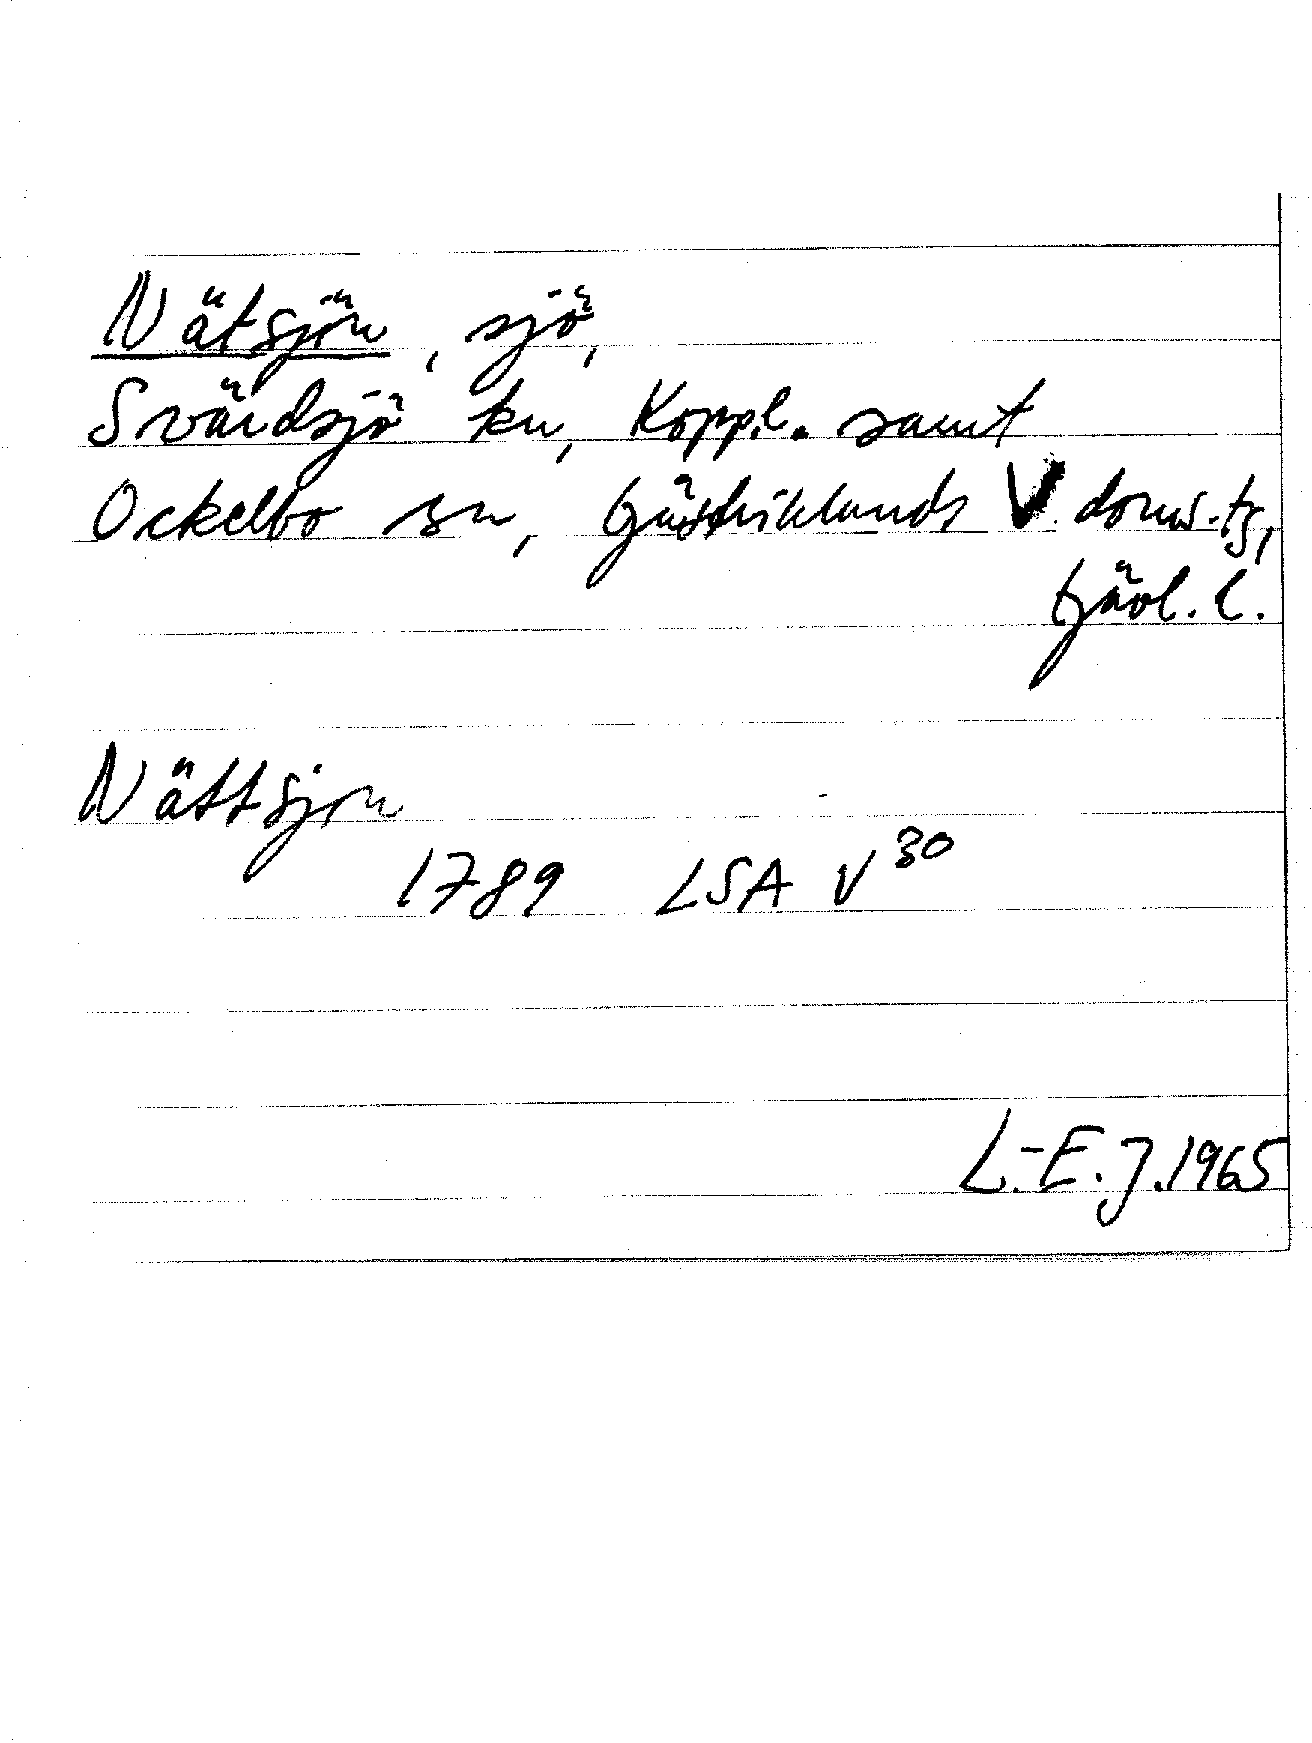 Nätsjön, sjö,
Svärdsjö kn, Koppl. samt
Ockelbo sn, Gästriklands V doms.tg,
Gävl. l.
Nättsjon
1789 LSA V³⁰
L.-E. J. 1965